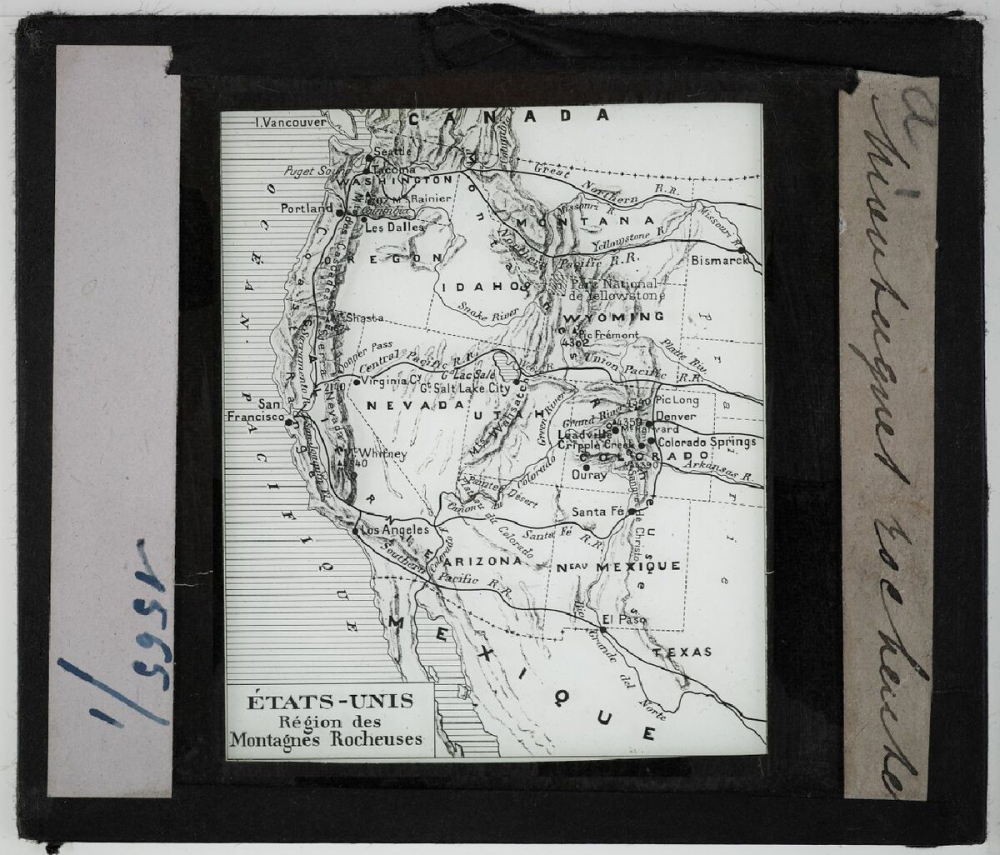 CANADA
I. Vancouver
Seattle
Puget Sound
Tacoma
WASHINGTON
Mt Rainier
Great Northern R.R.
Portland
Columbia
Les Dalles
Missouri R.
MONTANA
Missouri R.
Yellowstone R.
Northern Pacific R.R.
Bismarck
OREGON
IDAHO
Parc National
de Yellowstone
Snake River
WYOMING
Shasta
Pic Frémont
4302
Donner Pass
Central Pacific R.R.
Union Pacific R.R.
Platte Riv.
Gd Lac Salé
Virginia Cy
Gt Salt Lake City
Pic Long
NEVADA
UTAH
Mts Wahsatch
Green River
Grand River
Denver
San
Francisco
Leadville
Mt Harvard
Colorado Springs
Cripple Creek
COLORADO
Mt Whitney
Ouray
Arkansas R.
Painted Desert
Colorado
Canons du Colorado
Santa Fé
Los Angeles
Santa Fé R.R.
Southern Pacific R.R.
Colorado
ARIZONA
Neau MEXIQUE
El Paso
Rio Grande del Norte
TEXAS
MEXIQUE
OCEAN PACIFIQUE
ÉTATS-UNIS
Région des
Montagnes Rocheuses
1565
1/